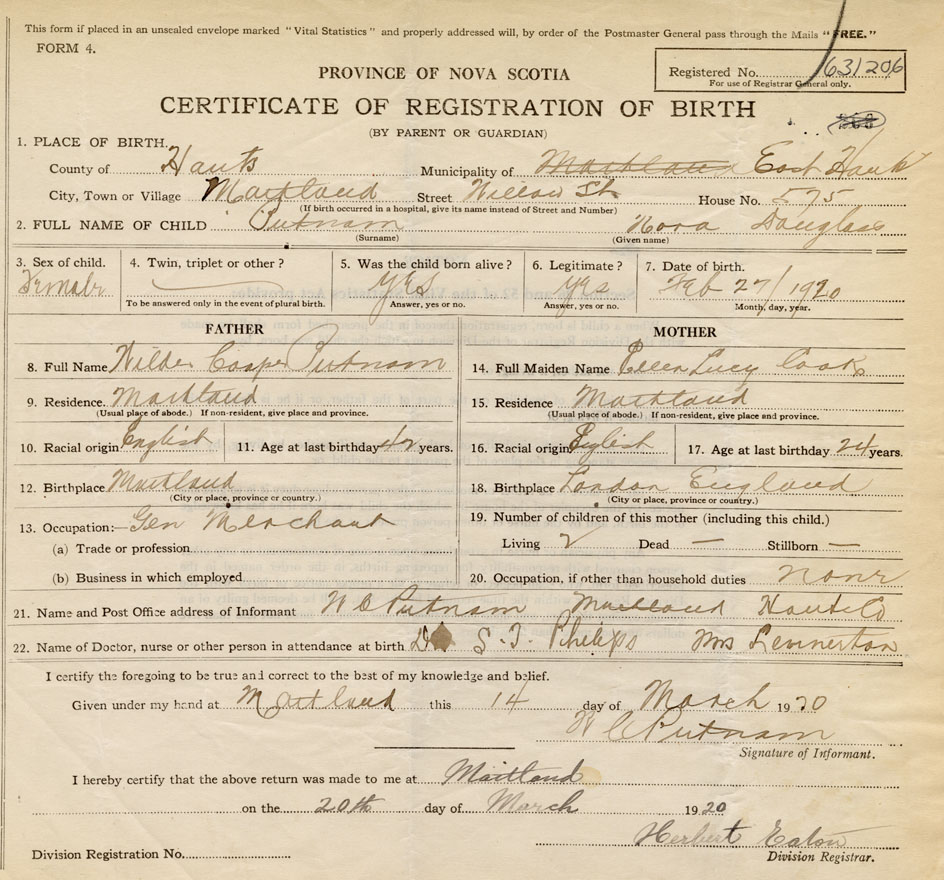 This form if placed in an unsealed envelope marked "Vital Statistics" and properly addressed will, by order of the Postmaster General pass through the Mails "FREE."
FORM 4.
PROVINCE OF NOVA SCOTIA
Registered No. 631206
For use of Registrar General only.
CERTIFICATE OF REGISTRATION OF BIRTH
(BY PARENT OR GUARDIAN)
1. PLACE OF BIRTH.
County of Hants Municipality of Maitland East Hants
City, Town or Village Maitland Street Willow St. House No. 575
(If birth occurred in a hospital, give its name instead of Street and Number)
2. FULL NAME OF CHILD Putnam Nora Douglass
(Surname) (Given name)
3. Sex of child. 4. Twin, triplet or other? 5. Was the child born alive? 6. Legitimate? 7. Date of birth.
Female Yes Yes Feb 27/1920
To be answered only in the event of plural birth. Answer, yes or no Answer, yes or no. Month, day, year.
FATHER MOTHER
8. Full Name Wilder Cooper Putnam 14. Full Maiden Name Ellen Lucy Cook
9. Residence. Maitland 15. Residence Maitland
(Usual place of abode.) If non-resident, give place and province. (Usual place of abode.) If non-resident, give place and province.
10. Racial origin English 11. Age at last birthday 42 years. 16. Racial origin English 17. Age at last birthday 24 years.
12. Birthplace Maitland 18. Birthplace London England
(City or place, province or country.) (City or place, province or country.)
13. Occupation:— Gen Merchant 19. Number of children of this mother (including this child.)
(a) Trade or profession Living 2 Dead — Stillborn —
(b) Business in which employed 20. Occupation, if other than household duties none
21. Name and Post Office address of Informant W C Putnam Maitland Hants Co
22. Name of Doctor, nurse or other person in attendance at birth Dr S. T. Phelps Mrs
I certify the foregoing to be true and correct to the best of my knowledge and belief.
Given under my hand at Maitland this 14 day of March 1920
W C Putnam
Signature of Informant.
I hereby certify that the above return was made to me at Maitland
on the 20th day of March 1920
Herbert Eaton
Division Registration No. Division Registrar.